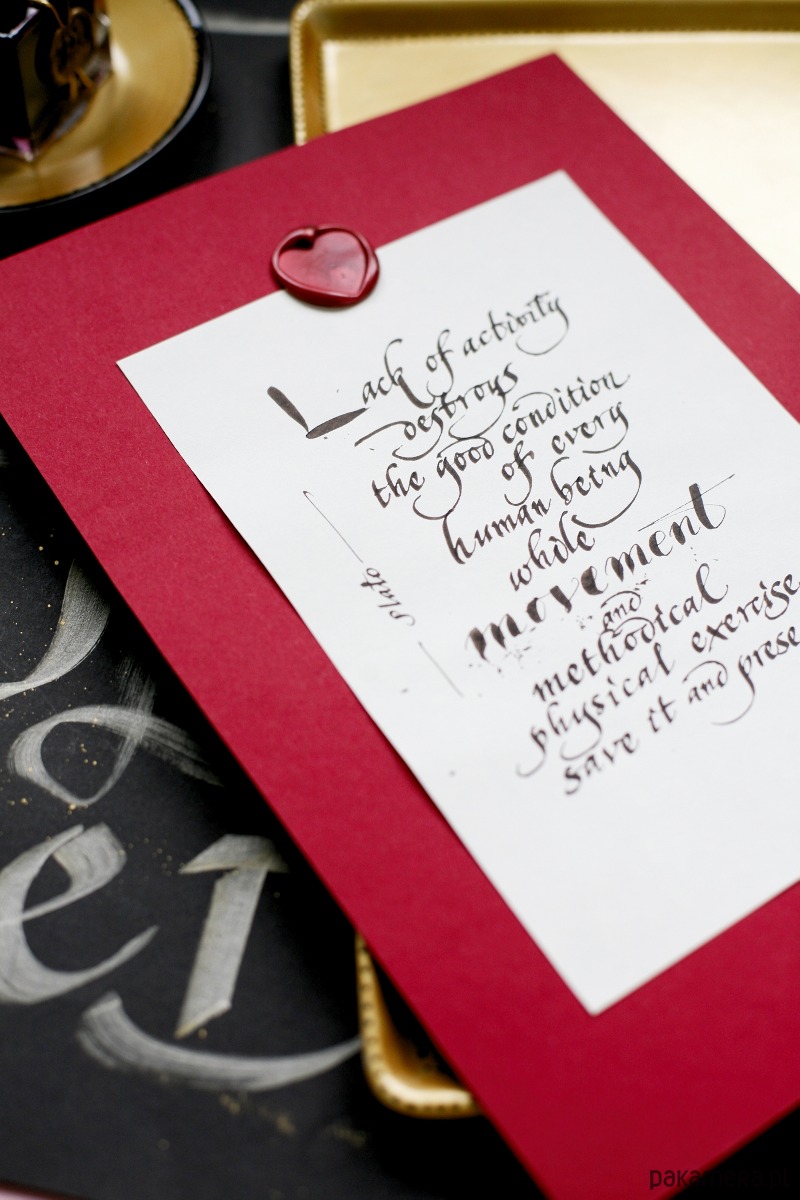 Lack of activity
destroys
the good condition
of every
human being
whole
movement
and
methodical
physical exercise
save it and prese
Plato